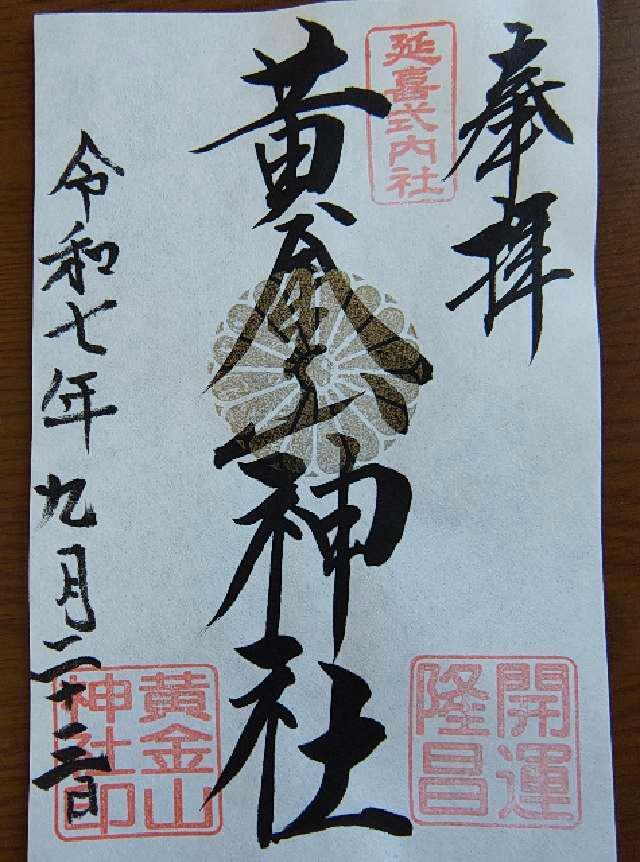 奉拝
延喜式内社
黄金山神社
開運
隆昌
令和七年九月二十三日
黄金山
神社印